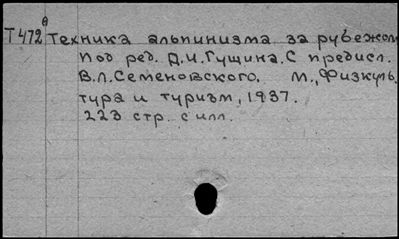 Т472 Техника альпинизма за рубежом
Под ред. Д.И.Гущина. С предисл.
В.Л.Семеновского. М., Физкуль
тура и туризм, 1937.
223 стр. с илл.